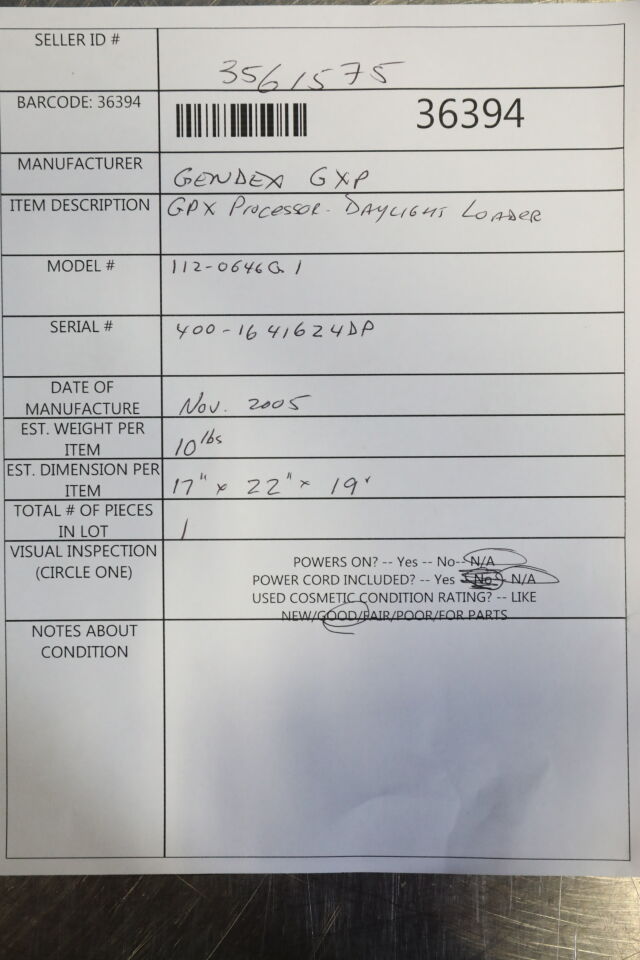 SELLER ID #
3561575
BARCODE: 36394
36394
MANUFACTURER
GENDEX GXP
ITEM DESCRIPTION
GPX PROCESSOR - DAYLIGHT LOADER
MODEL #
112-0646G1
SERIAL #
400-1641624DP
DATE OF
MANUFACTURE
NOV. 2005
EST. WEIGHT PER
ITEM
10 lbs
EST. DIMENSION PER
ITEM
17" x 22" x 19"
TOTAL # OF PIECES
IN LOT
1
VISUAL INSPECTION
(CIRCLE ONE)
POWERS ON? -- Yes -- No-- N/A
POWER CORD INCLUDED? -- Yes -- No -- N/A
USED COSMETIC CONDITION RATING? -- LIKE
NEW/GOOD/FAIR/POOR/FOR PARTS
NOTES ABOUT
CONDITION